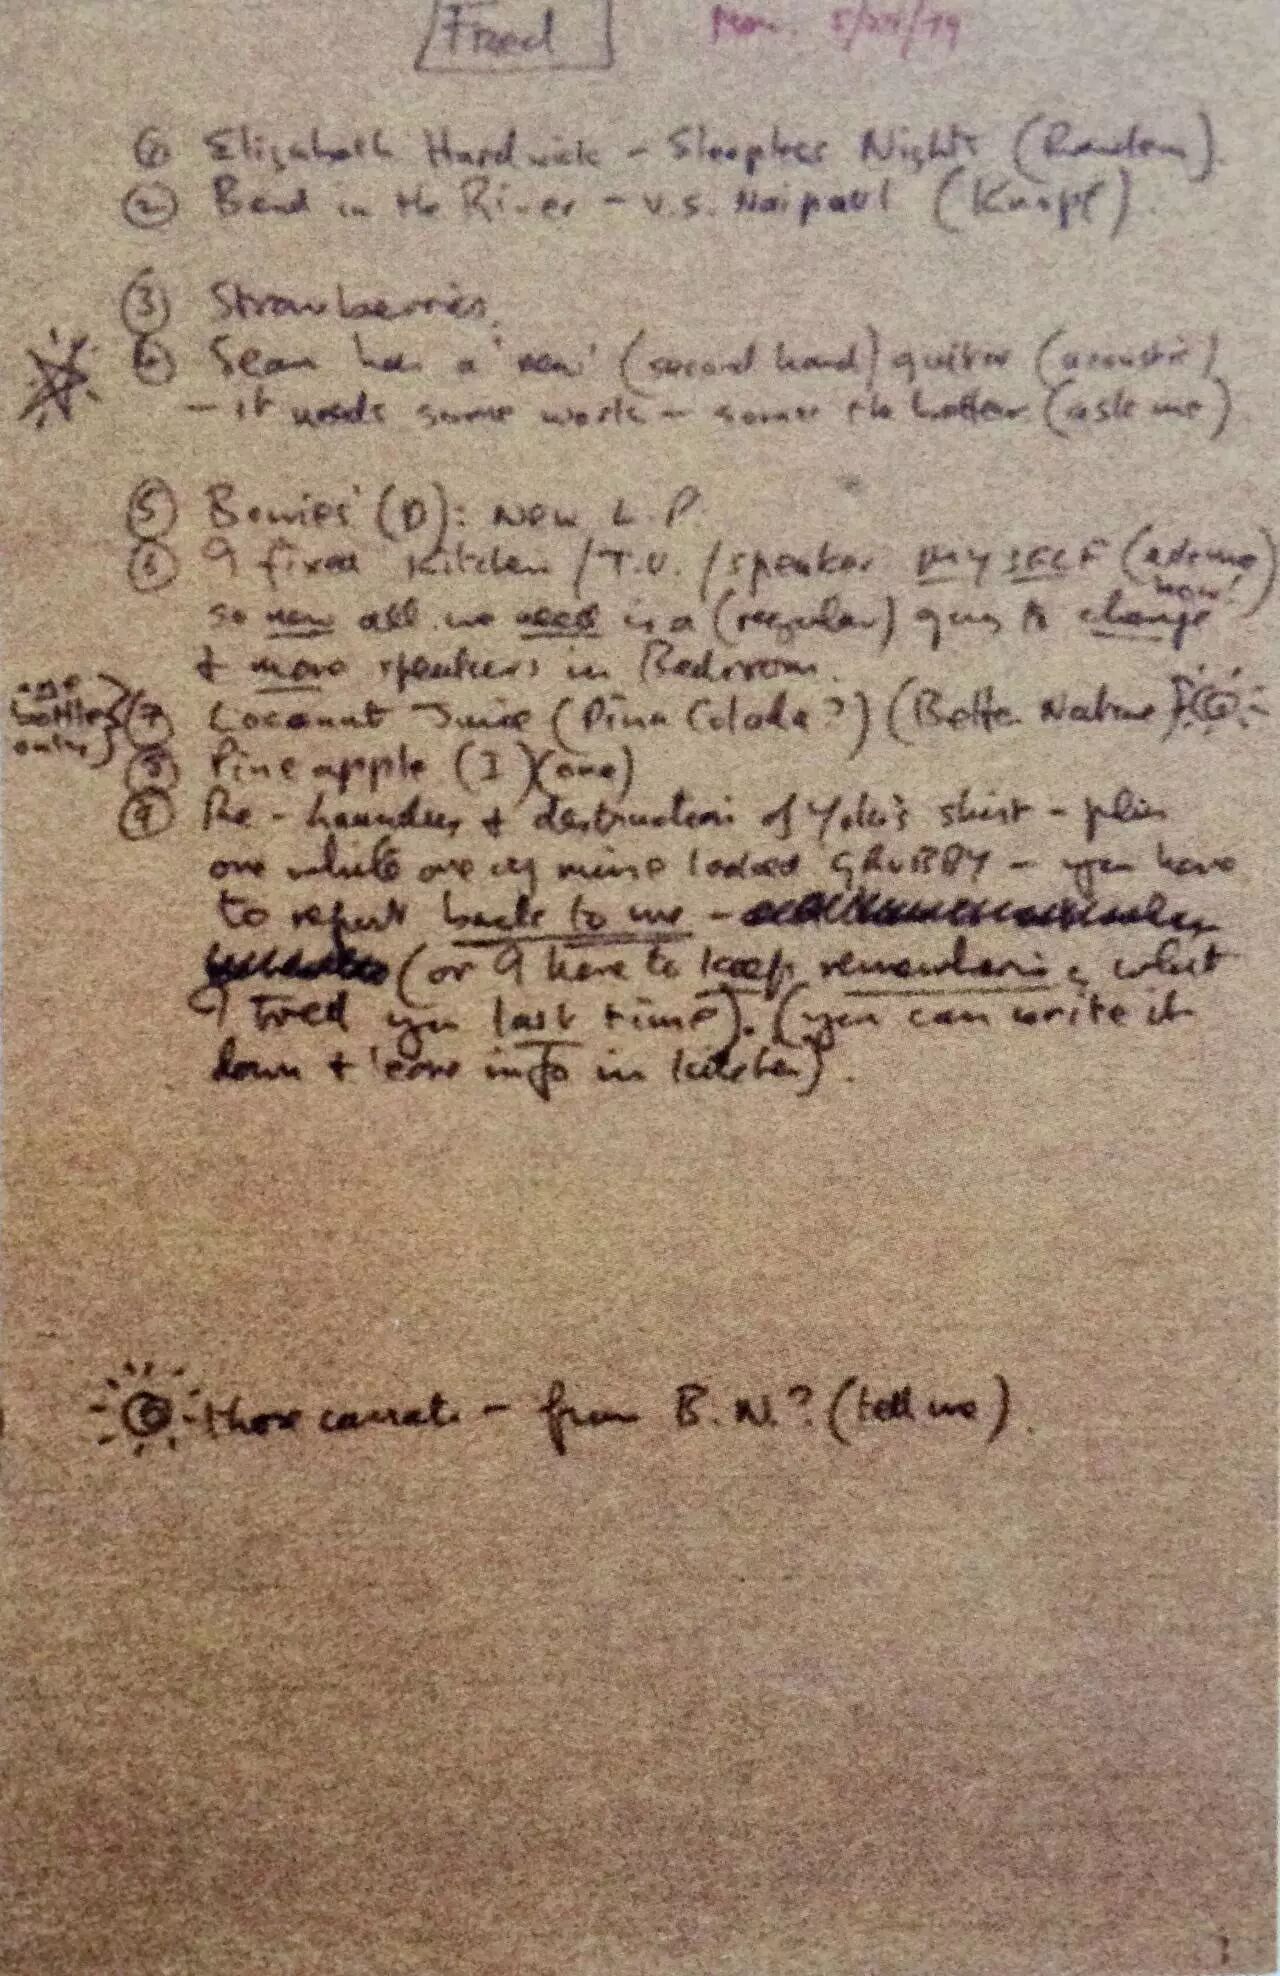 Fred
Mon. 5/ /79
① Elizabeth Hardwick - Sleepless Nights (Random).
② Bend in the River - V.S. Naipaul (Knopf).
③ Strawberries.
④ Sean has a 'new' (second hand) guitar (acoustic)
- it needs some work - sooner the better (ask me)
⑤ Bowies' (D): New L.P.
⑥ I fixed Kitchen/T.V./speaker MYSELF (ask me how!)
so now all we need is a (regular) guy to change
+ more speakers in Bedroom.
one bottle only } ⑦ Coconut Juice (Pina Colada?) (Better Nature)
⑧ Pineapple (I) (one)
⑨ Re-laundry + destruction of Yoko's shirt - plus
one white one of mine looked GRUBBY - you have
to report back to me -
(or I have to keep remembering what
I told you last time). (you can write it
down + leave info in kitchen).
those carrots - from B.N.? (tell me).
1